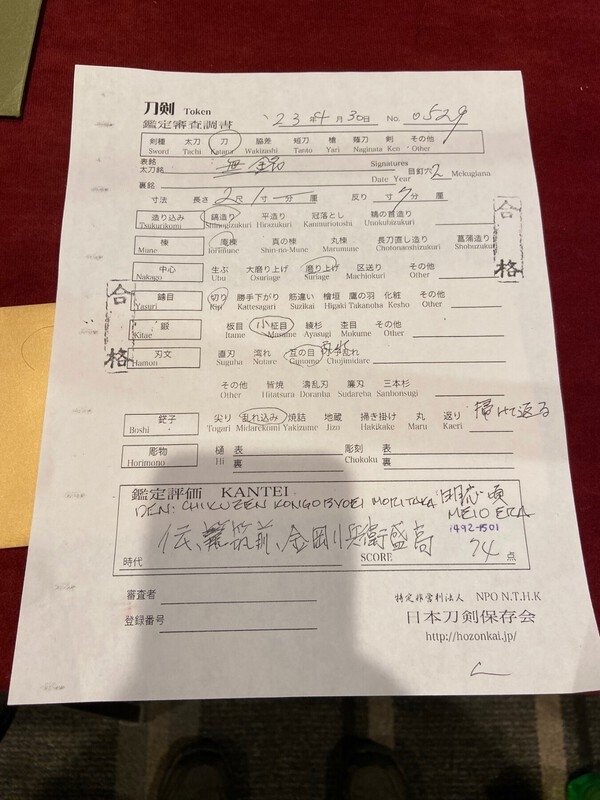 刀剣 Token
鑑定審査調書 '23年4月30日 No. 0529
剣種 太刀 刀 脇差 短刀 槍 薙刀 剣 その他
Sword Tachi Katana Wakizashi Tanto Yari Naginata Ken Other
表銘
太刀銘 無銘 Signatures 目釘穴 2 Mekugiana
Date Year
裏銘
寸法 長さ 2尺 1寸 一分 厘 反り 寸 7分 厘
造り込み 鎬造り 平造り 冠落とし 鵜の首造り
Tsukurikomi Shinogizukuri Hirazukuri Kanmuriotoshi Unokubizukuri
合格
棟 庵棟 真の棟 丸棟 長刀直し造り 菖蒲造り
Mune Iorimune Shin-no-Mune Marumune Chotonaoshizukuri Shobuzuku
中心 生ぶ 大磨り上げ 磨り上げ 区送り その他
Nakago Ubu Osuriage Suriage Machiokuri Other
合格
鑢目 切り 勝手下がり 筋違い 檜垣 鷹の羽 化粧 その他
Yasuri Kiri Kattesagari Suzikai Higaki Takanoha Kesho Other
鍛 板目 小柾目 綾杉 杢目 その他
Kitae Itame Masame Ayasugi Mokume Other
刃文 直刃 湾れ 互の目 丁子乱れ
Hamon Suguha Notare Gunome Chojimidare
その他 皆焼 濤乱刃 簾刃 三本杉
Other Hitatsura Doranba Sudareba Sanbonsugi
鋩子 尖り 乱れ込み 焼詰 地蔵 掃き掛け 丸 返り 掃けて返る
Boshi Togari Midarekomi Yakizume Jizo Hakikake Maru Kaeri
彫物 樋 表 彫刻 表
Horimono Hi 裏 Chokoku 裏
鑑定評価 KANTEI 明応頃
DEN: CHIKUZEN KONGOBYOEI MORITAKA MEIO ERA
1492-1501
伝、筑前、金剛兵衛盛高
時代 SCORE 74 点
審査者
登録番号
特定非営利法人 NPO N.T.H.K
日本刀剣保存会
http://hozonkai.jp/